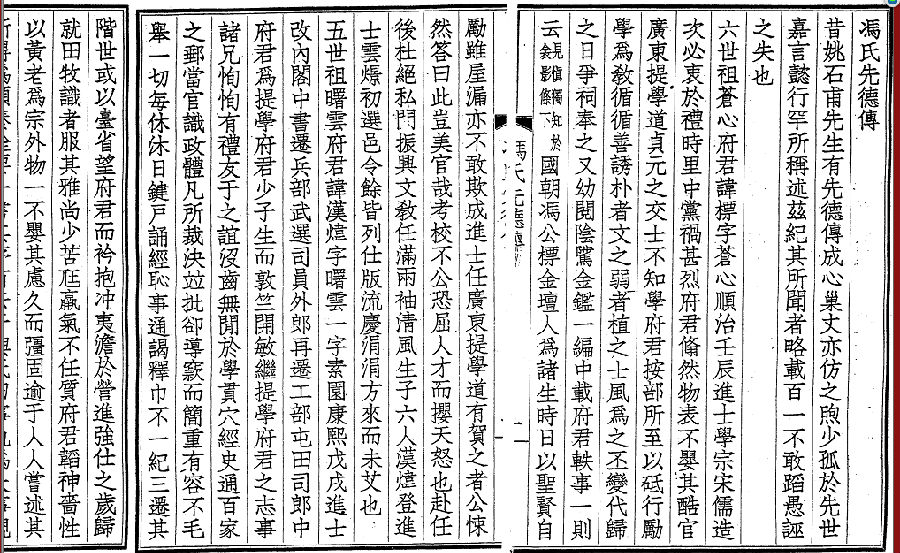 馮氏先德傳
昔姚石甫先生有先德傳成心巢丈亦仿之煦少孤於先世
嘉言懿行罕所稱述茲紀其所聞者略載百一不敢蹈愚誣
之失也
六世祖蒼心府君諱標字蒼心順治壬辰進士學宗宋儒造
次必衷於禮時里中黨禍甚烈府君翛然物表不嬰其酷官
廣東提學道貞元之交士不知學府君按部所至以砥行勵
學爲教循循善誘朴者文之弱者植之士風爲之丕變代歸
之日爭祠奉之又幼閱陰騭金鑑一編中載府君軼事一則
云見愼獨知於衾影條下國朝馮公標金壇人爲諸生時日以聖賢自
馮氏先德傳
一
勵雖屋漏亦不敢欺成進士任廣東提學道有賀之者公悚
然答曰此豈美官哉考校不公恐屈人才而攖天怒也赴任
後杜絕私門振興文教任滿兩袖清風生子六人漢煒登進
士雲初選邑令餘皆列仕版流慶涓涓方來而未艾也
五世祖曙雲府君諱漢煒字曙雲一字素園康熙戊戌進士
改內閣中書遷兵部武選司員外郎再遷工部屯田司郎中
府君爲提學府君少子生而敦竺開敏繼提學府君之志事
諸兄恂恂有禮友于之誼沒齒無間於學貫穴經史通百家
之郵當官識政體凡所裁決竝批卻導窾而簡重有容不毛
舉一切每休沐日鍵戶誦經恥事通謁釋巾不一紀三遷其
階世或以臺省望府君而衿抱冲夷澹於營進強仕之歲歸
就田牧識者服其雅尚少苦尫羸氣不任質府君韜神嗇性
以黃老爲宗外物一不嬰其慮久而彊固逾于人人嘗述其